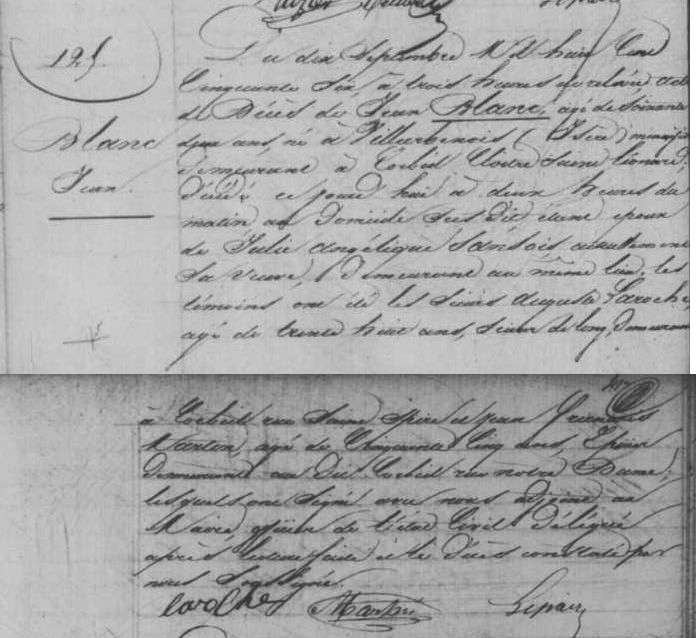 125
Blanc
Jean
L'an dix Septembre Mil huit Cent
Cinquante Six à trois heures de relevée acte
de Décès de Jean Blanc, agé de Soixante
deux ans, né à Villurbenois (Isère)
demeurant à Corbeil Cloître Saint Léonard,
décédé ce jourd'hui à deux heures du
matin au domicile Sus dit étant époux
de Julie angélique actuellement
Sa veuve, demeurant au même lieu, les
témoins ont été les Sieurs Auguste Laroche,
agé de trente huit ans, Scieur de long, demeurant
à Corbeil rue Saint Spire et Jean
agé de Cinquante Cinq ans, Epicier
demeurant au dit Corbeil rue notre Dame,
lesquels ont Signé avec nous adjoint au
Maire, officier de l'état Civil délégué
après lecture faite et le Décès constaté par
nous Soussigné.
Laroche Martin